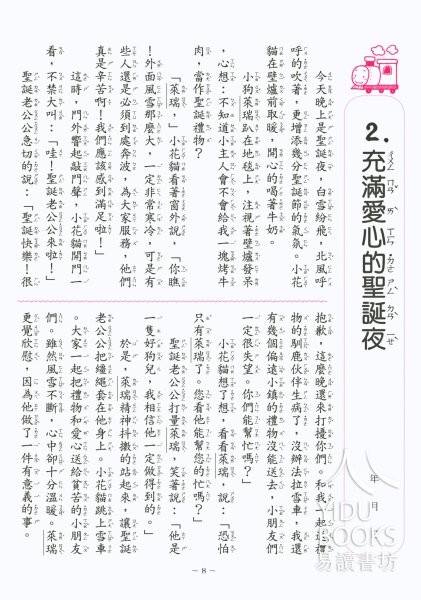 2. 充滿愛心的聖誕夜
年 月
今天晚上是聖誕夜，白雪紛飛，北風呼
呼的吹著，更增添幾分聖誕節的氣氛。小花
貓在壁爐前取暖，開心的喝著牛奶。
小狗萊瑞趴在地毯上，注視著壁爐發呆
，心想：不知道小主人會不會給我一塊烤牛
肉，當作聖誕禮物？
「萊瑞，」小花貓看著窗外說，「你瞧
！外面風雪那麼大，一定非常寒冷，可是有
些人還是必須到處奔波，為大家服務，他們
真是辛苦啊！我們應該感到滿足啦！」
這時，門外響起敲門聲，小花貓開門一
看，不禁大叫：「哇！聖誕老公公來啦！」
聖誕老公公急切的說：「聖誕快樂！很
抱歉，這麼晚還來打擾你們。和我一起送禮
物的馴鹿伙伴生病了，沒辦法拉雪車，我還
有幾個偏遠小鎮的禮物沒能送去，小朋友們
一定很失望。你們能幫忙嗎？」
小花貓想了想，看看萊瑞，說：「恐怕
只有萊瑞了。您看他能幫您的忙嗎？」
聖誕老公公打量萊瑞，笑著說：「他是
一隻好狗兒，我相信他一定做得到的。」
於是，萊瑞精神抖擻的站起來，讓聖誕
老公公把繮繩套在他身上。小花貓跳上雪車
。大家一起把禮物和愛心送給貧苦的小朋友
們。雖然風雪不斷，心中卻十分溫暖。萊瑞
更覺欣慰，因為他做了一件有意義的事。
~ 8 ~
YIDU
BOOKS
易讀書坊